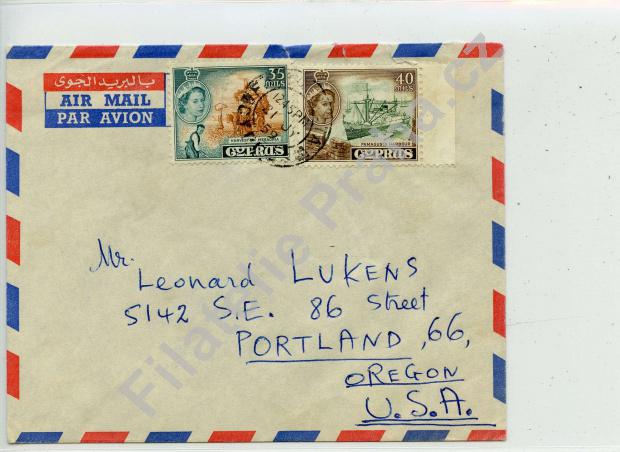 بالبريد الجوى
AIR MAIL
PAR AVION
35
MILS
HARVEST IN MESAORIA
CYPRUS
40
MILS
FAMAGUSTA HARBOUR
CYPRUS
Mr.
Leonard LUKENS
5142 S.E. 86 Street
PORTLAND, 66,
OREGON
U.S.A.
Filatelie Praga.cz